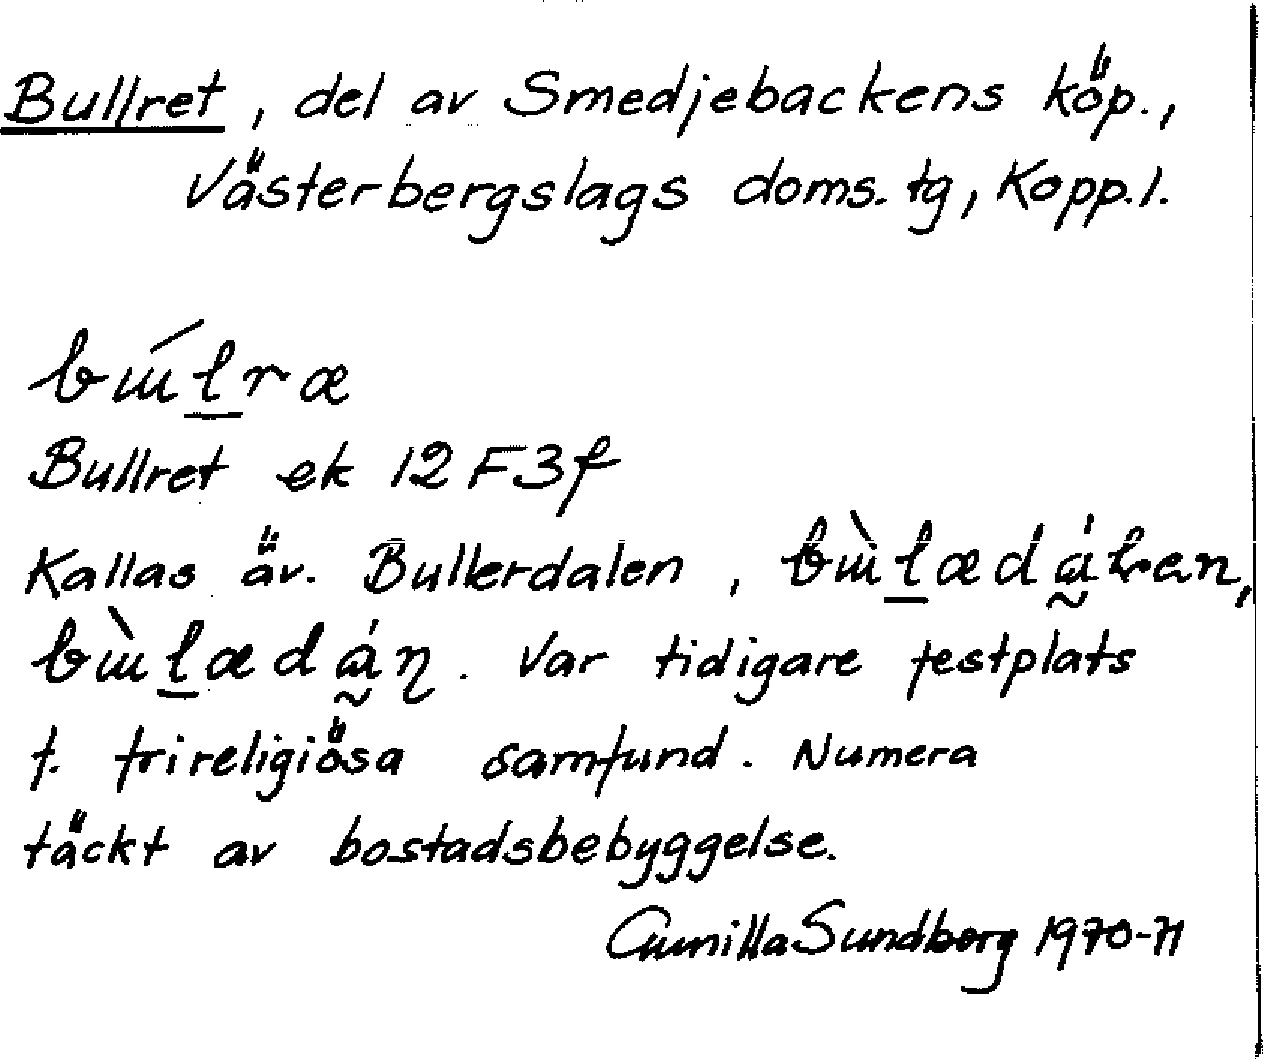 Bullret, del av Smedjebackens köp.,
Västerbergslags doms. tg, Kopp.l.
Bullret ek 12F3f
Kallas äv. Bullerdalen,
Var tidigare festplats
f. frireligiösa samfund. Numera
täckt av bostadsbebyggelse.
Gunilla Sundberg 1970-71